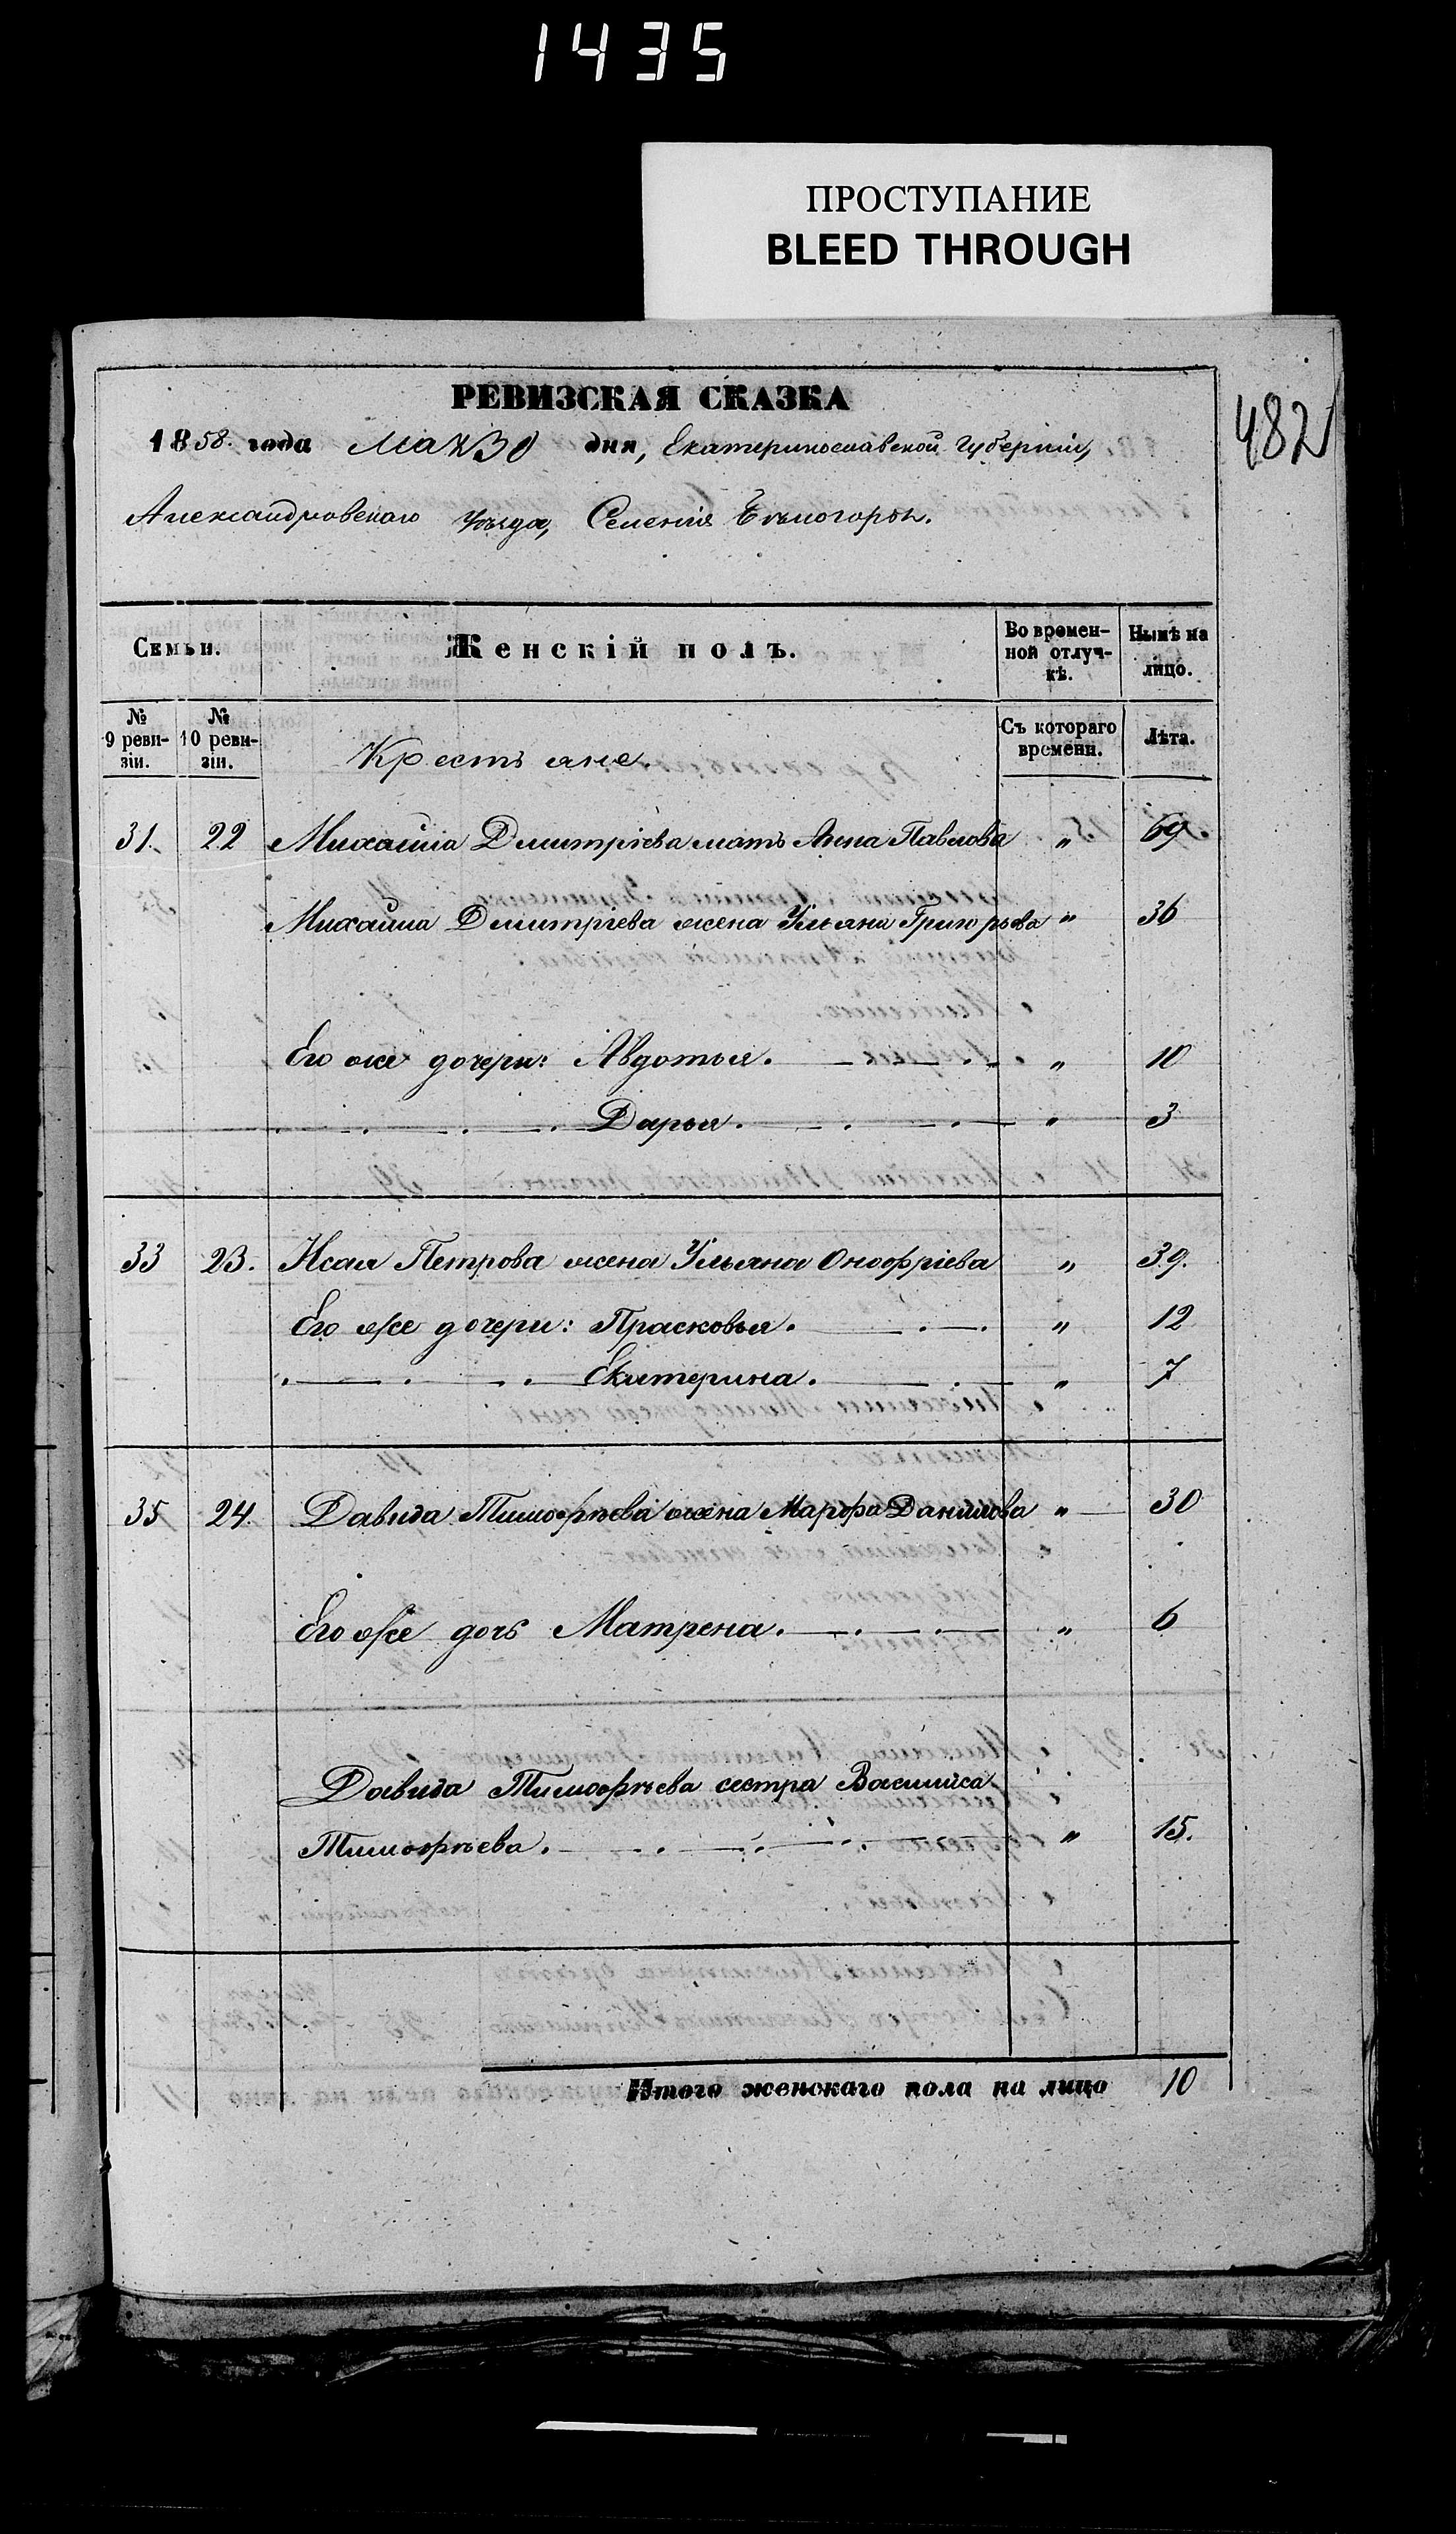 1435
ПРОСТУПАНИЕ
BLEED THROUGH
482
РЕВИЗСКАЯ СКАЗКА
1858. года Мая 30 дня, Екатеринославской Губерніи,
Александровскаго Уѣзда, Селенія Бѣлогорѣ.
Семьи. Женскій полъ. Во времен-ной отлуч-кѣ. Нынѣ на лицо.
№ 9 реви-зіи. № 10 реви-зіи. Крестьяне. Съ котораго времени. Лѣта.
31. 22 Михайла Дмитріева мать Анна Павлова „ 69
Михайла Дмитріева жена Ульяна Григорьева „ 36
Его же дочери: Авдотья. „ 10
Дарья. „ 3
33 23. Исая Петрова жена Ульяна Онофріева „ 39.
Его же дочери: Прасковья. „ 12
Екатерина. „ 7
35 24. Давида Тимофѣева жена Марфа Данилова „ 30
Его же дочь Матрена. „ 6
Давида Тимофѣева сестра Василиса
Тимофѣева. „ 15.
Итого женскаго пола на лицо 10